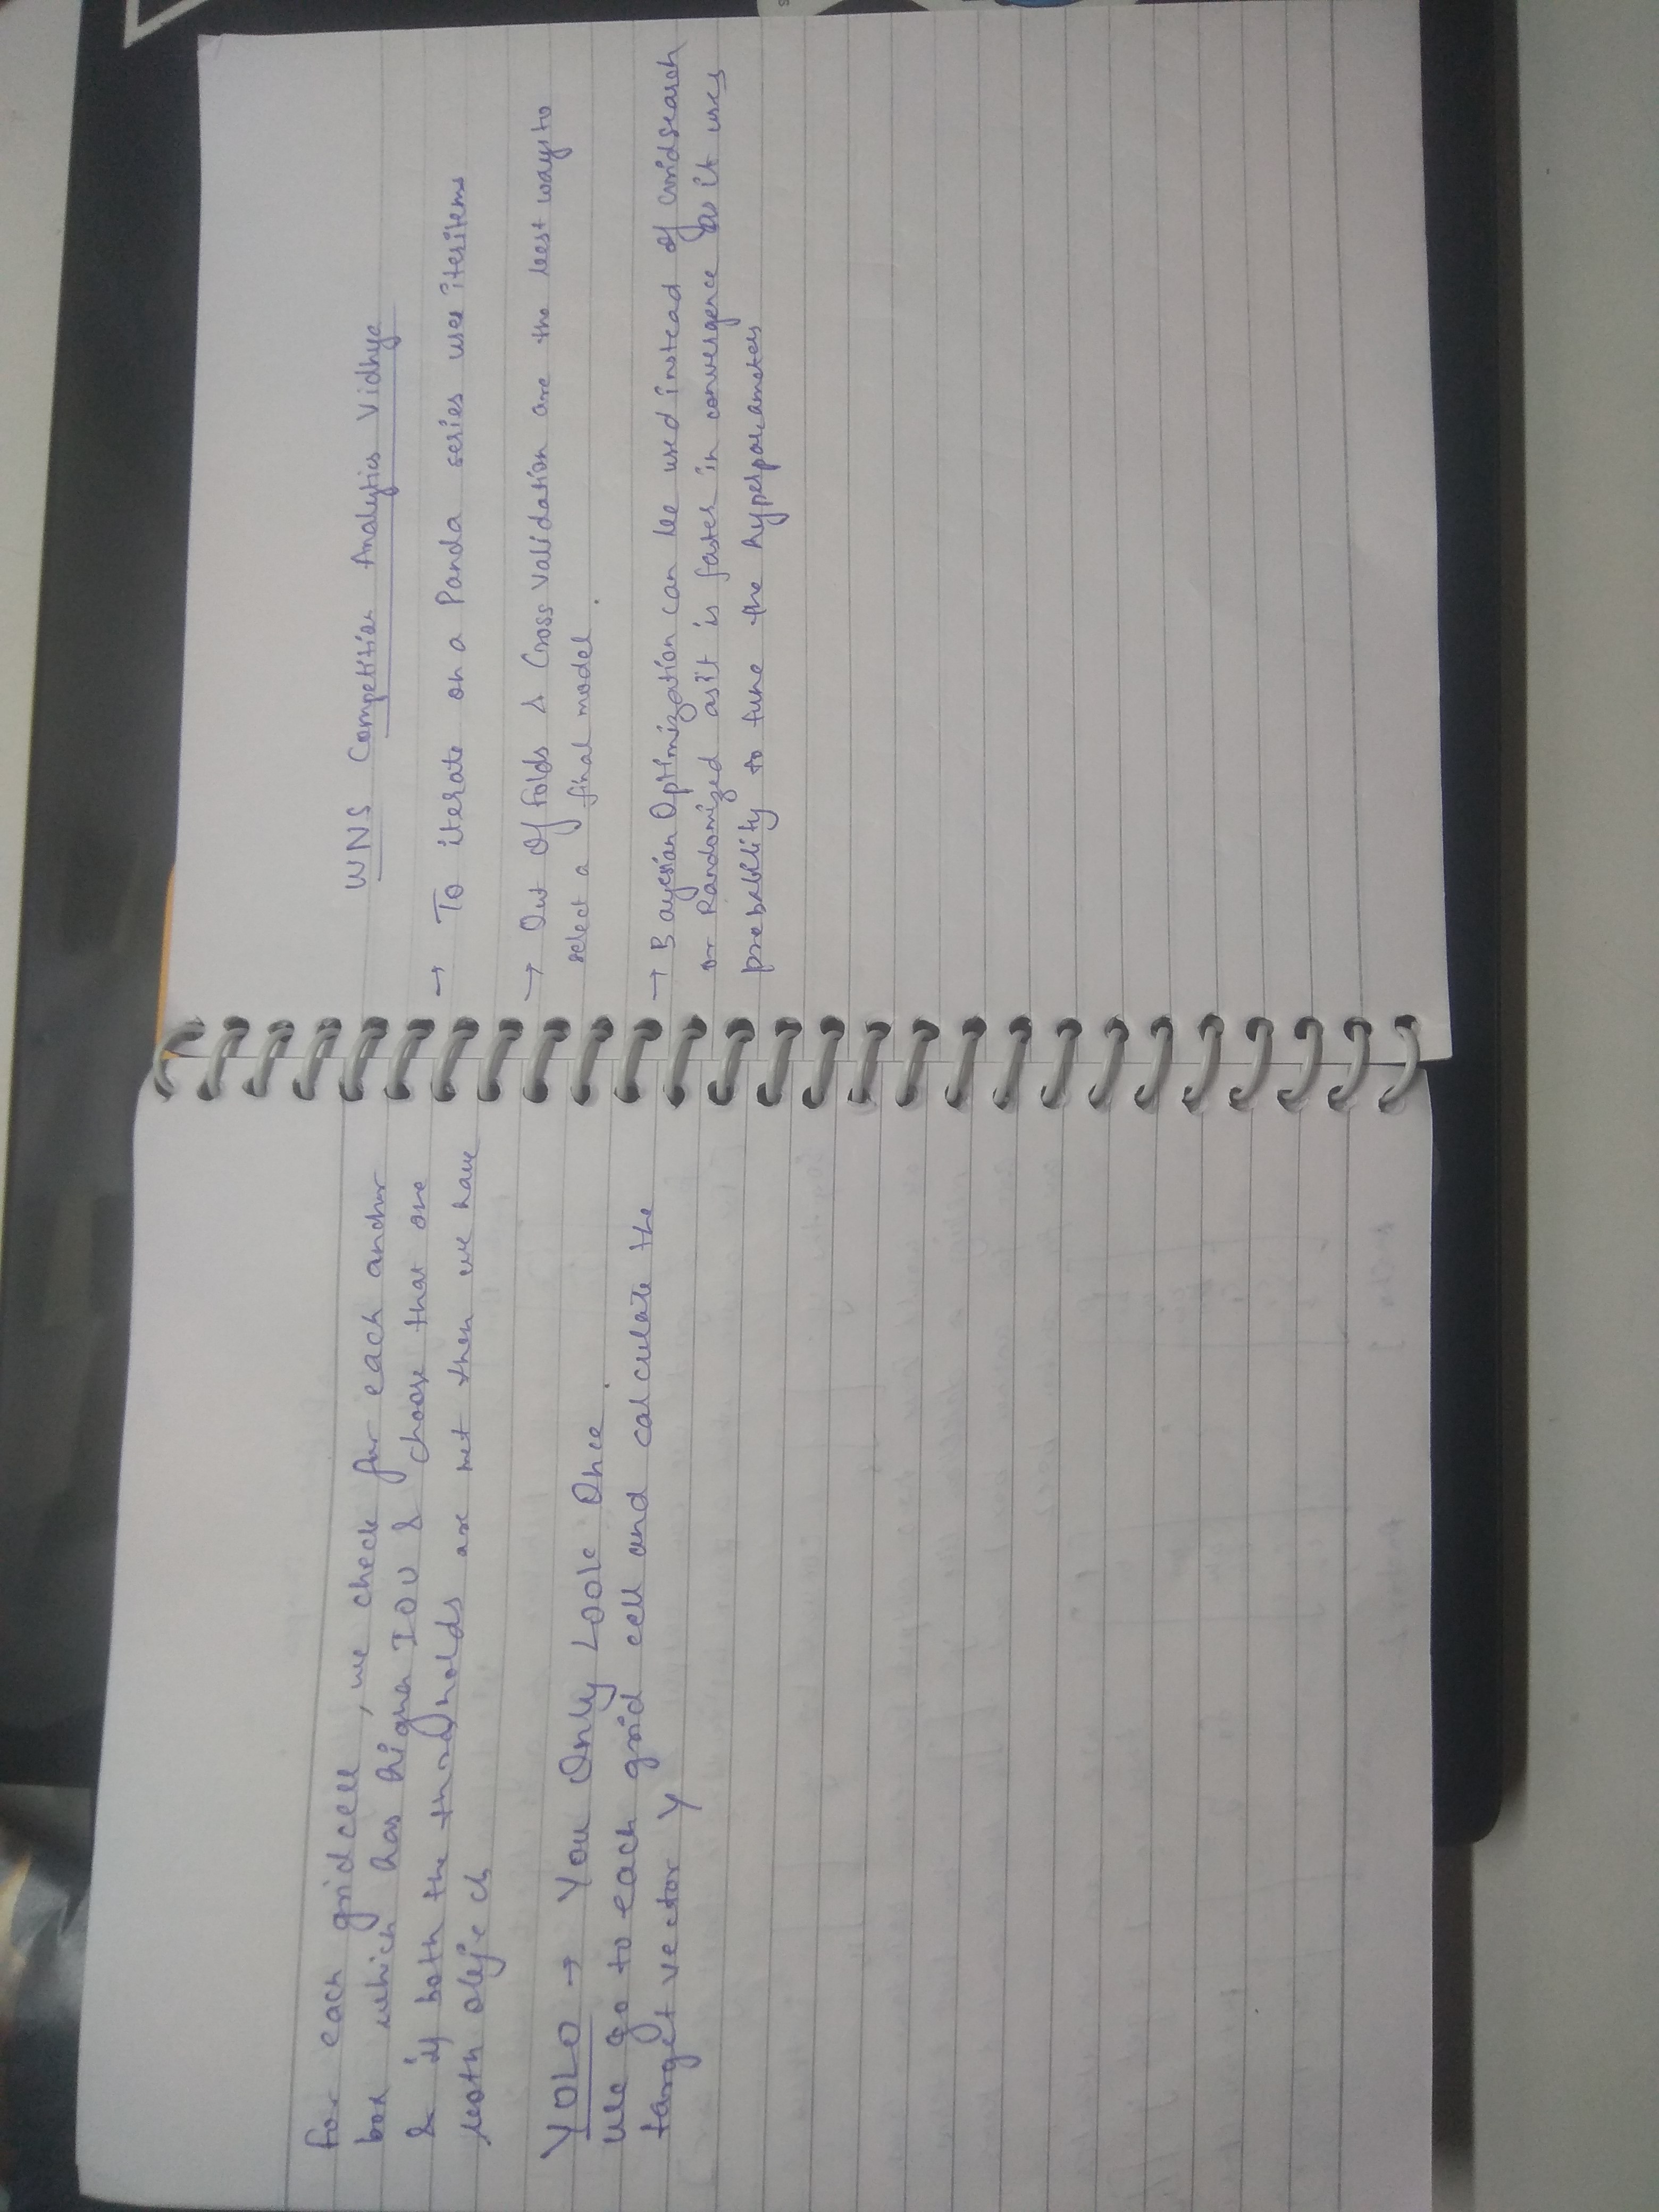 For each grid cell, we check for each anchor
box which has higher IOU & choose that one
& if both the thresholds are met then we have
both object
YOLO → You Only Look Once.
We go to each grid cell and calculate the
target vector Y
WNS Competition Analytics Vidhya
→ To iterate on a Panda series use iteritems
→ Out Of Folds & Cross Validation are the best ways to
select a final model.
→ Bayesian Optimization can be used instead of Gridsearch
or Randomized as it is faster in convergence as it uses
probability to tune the hyperparameters